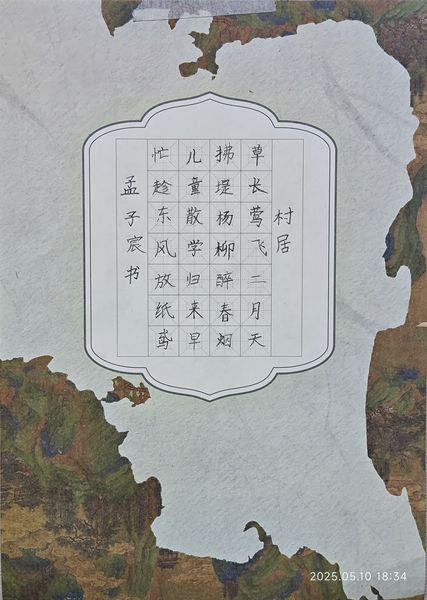 村居
草长莺飞二月天
拂堤杨柳醉春烟
儿童散学归来早
忙趁东风放纸鸢
孟子宸书
2025.05.10 18:34